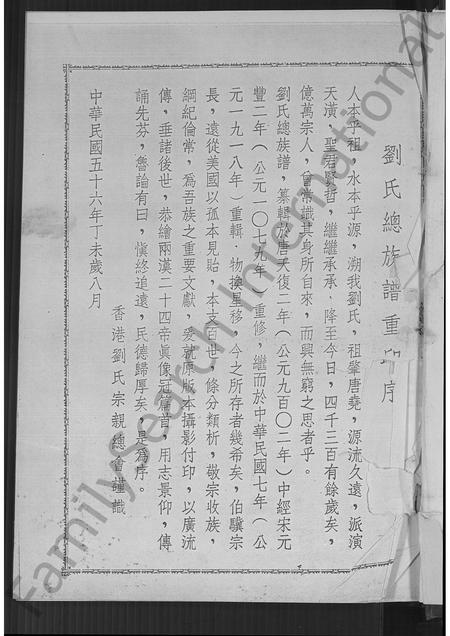 劉氏總族譜重印序
人本乎祖，水本乎源，溯我劉氏，祖肇唐堯，源流久遠，派演
天潢，聖君賢哲，繼繼承承，降至今日，四千三百有餘歲矣，
億萬宗人，曾常識其身所自來，而興無窮之思者乎。
劉氏總族譜，纂輯於唐天復二年（公元九百〇二年）中經宋元
豐二年（公元一〇七九年）重修，繼而於中華民國七年（公
元一九一八年）重輯，物換星移，今之所存者幾希矣，伯驥宗
長，遠從美國以孤本見貽，本支百世，條分類析，敬宗收族，
綱紀倫常，爲吾族之重要文獻，爰就原版本攝影付印，以廣流
傳，垂諸後世，恭繪兩漢二十四帝眞像冠篇首，用志景仰，傳
誦先芬，魯論有曰，愼終追遠，民德歸厚矣，是爲序。
香港劉氏宗親總會謹識
中華民國五十六年丁未歲八月
Familysearch International